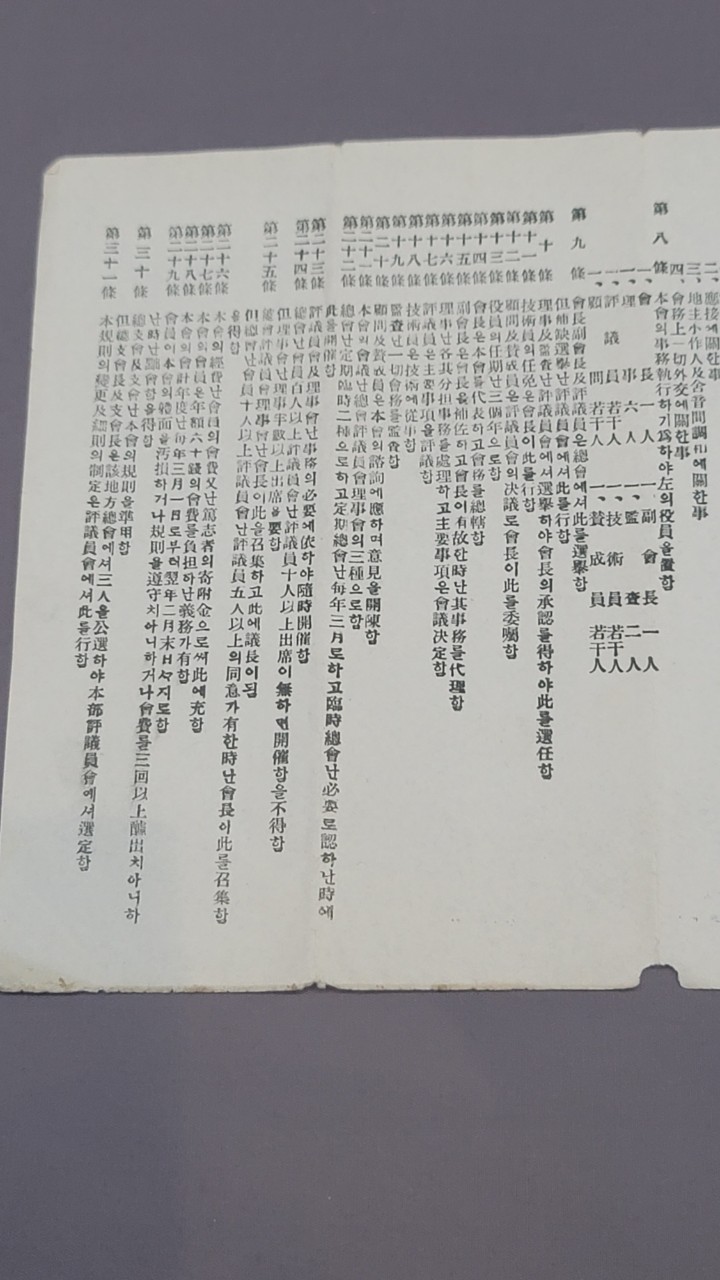 二、應接에關한事
三、地主小作人及舍音間調和에關한事
四、會務上一切外交에關한事
第八條 本會의事務執行하기爲하야左의役員을置함
一、會長 一人 一、副會長 一人
一、理事 六人 一、監査 二人
一、評議員 若干人 一、技術員 若干人
一、顧問 若干人 一、贊成員 若干人
第九條 會長副會長及評議員은總會에셔此를選擧함
但補缺選擧난評議員會에셔此를行함
第十條 理事及監査난評議員會에셔選擧하야會長의承認을得하야此를選任함
第十一條 技術員의任免은會長이此를行함
第十二條 顧問及贊成員은評議員會의決議로會長이此를委囑함
第十三條 役員의任期난三個年으로함
第十四條 會長은本會를代表하고會務를總轄함
第十五條 副會長은會長을補佐하고會長이有故한時난其事務를代理함
第十六條 理事난各其分担事務를處理하고主要事項은會議決定함
第十七條 評議員은主要事項을評議함
第十八條 技術員은技術에從事함
第十九條 監査난一切會務를監査함
第二十條 顧問及贊成員은本會의諮詢에應하며意見을開陳함
第二十一條 本會의會議난總會評議員會理事會의三種으로함
第二十二條 總會난定期臨時二種으로하고定期總會난每年三月로하고臨時總會난必要로認하난時에
此를開催함
第二十三條 評議員會及理事會난事務의必要에依하야隨時開催함
第二十四條 總會난會員百人以上評議員會난評議員十人以上出席이無하면開催함을不得함
但理事會난理事半數以上出席을要함
第二十五條 總會評議員會理事會난會長이此을召集하고此에議長이됨
但總會난會員十人以上評議員會난評議員五人以上의同意가有한時난會長이此를召集함
을得함
第二十六條 本會의經費난會員의會費又난篤志者의寄附金으로써此에充함
第二十七條 本會의會員은年額六十錢의會費를負担하난義務가有함
第二十八條 本會의會計年度난每年三月一日로부터翌年二月末日지로함
第二十九條 會員이本會의體面을汚損하거나規則을遵守치아니하거나會費를三回以上醵出치아니하
난時난黜會함을得함
第三十條 總支會及支會난本會의規則을準用함
但總支會長及支會長은該地方總會에셔三人을公選하야本部評議員會에셔選定함
第三十一條 本規則의變更及細則의制定은評議員會에셔此를行함